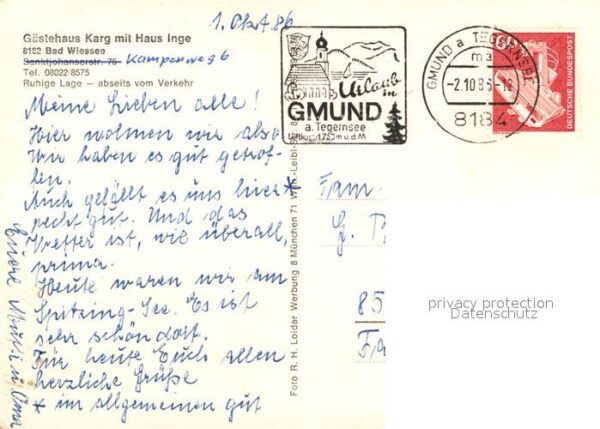 1. Okt 86
Gästehaus Karg mit Haus Inge
8182 Bad Wiessee
Sanktjohanserstr. 75 Kampenweg 6
Tel. 08022/8575
Ruhige Lage – abseits vom Verkehr
Meine Lieben alle!
Hier wohnen wir also
Wir haben es gut getrof-
fen.
Auch gefällt es uns hier *
recht gut. Und das
Wetter ist, wie überall,
prima.
Heute waren wir am
Spitzing-See. Es ist
sehr schön dort.
Für heute Euch allen
herzliche Grüße
* im allgemeinen gut
Eure Mutti u. Oma
Foto R. H. Leider Werbung 8 München 71
Urlaub
in
GMUND
a. Tegernsee
GMUND a TEGERNSEE
ma
-2.10.86-12
8184
DEUTSCHE BUNDESPOST
Fam.
G.
85
Fa
privacy protection
Datenschutz